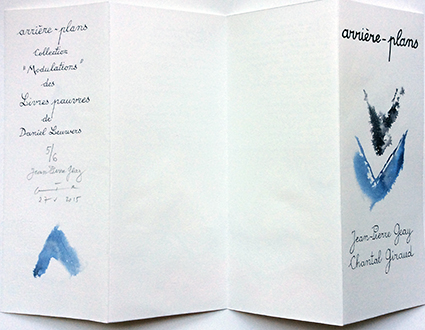 arrière-plans
Collection
"Modulations"
des
Livres pauvres
de
Daniel Leuwers
5/6
Jean-Pierre Geay
2015
arrière-plans
Jean-Pierre Geay
Chantal Giraud